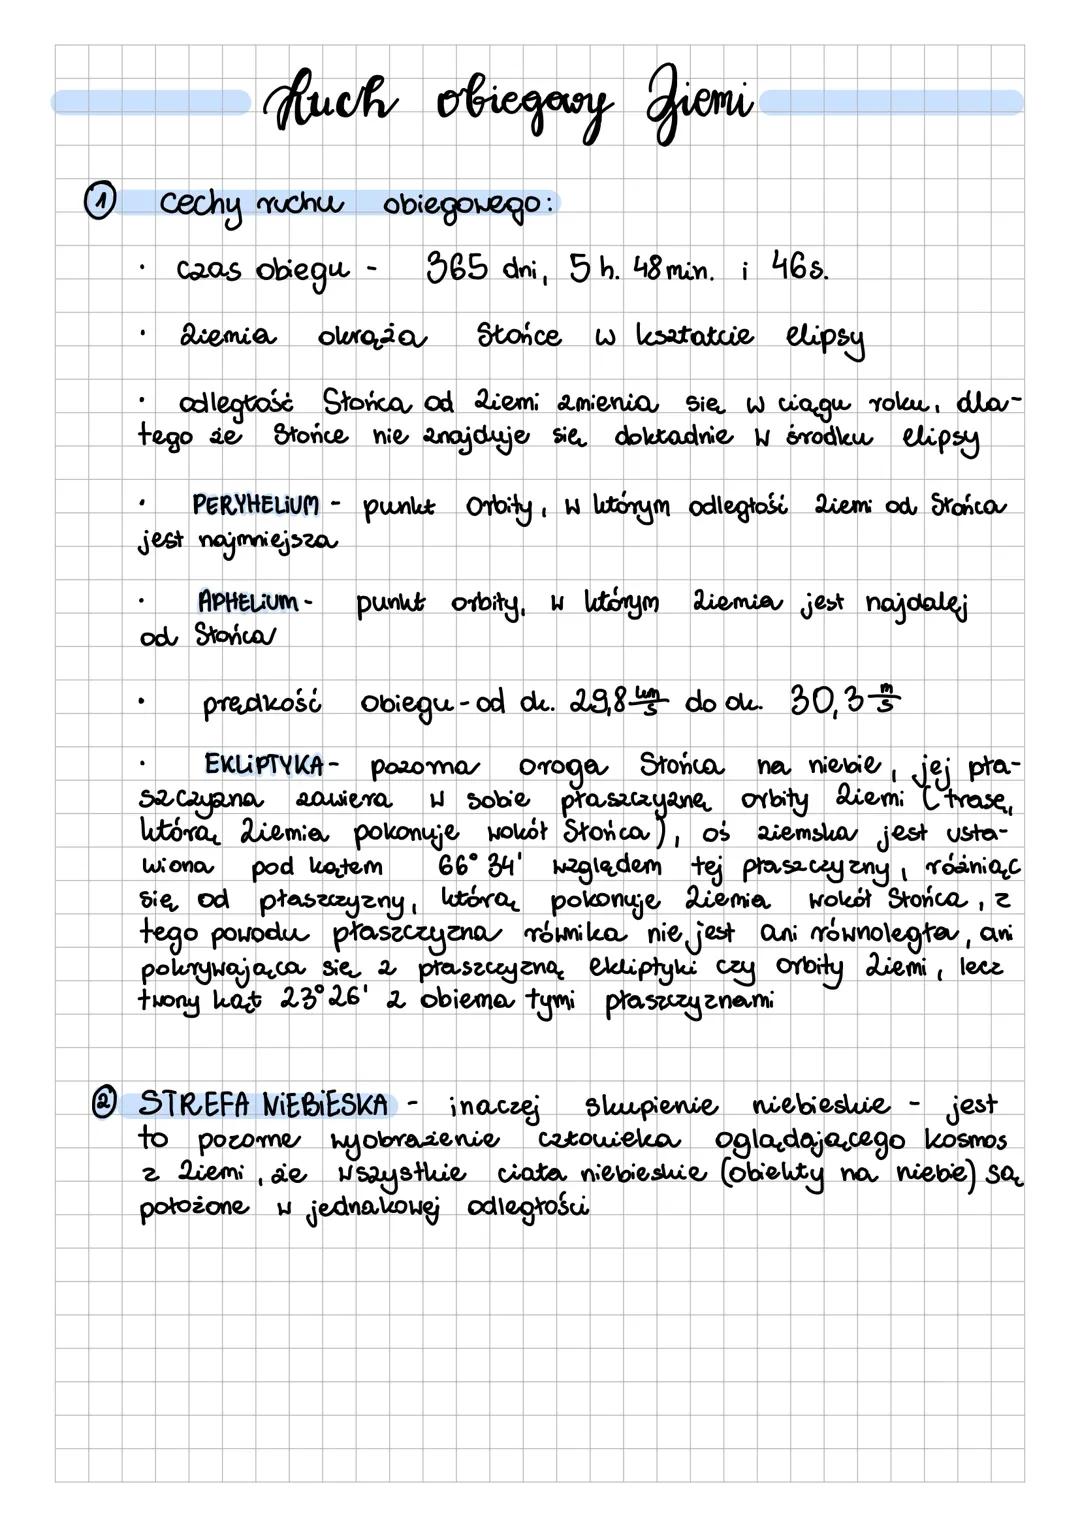 Ruch obiegowy Ziemi
1 Cechy ruchu obiegowego:
· czas obiegu - 365 dni, 5 h. 48 min. i 46s.
· Ziemia okrąża Słońce w kształcie elipsy
· odległość Słońca od Ziemi zmienia się w ciągu roku, dla-
tego że Słońce nie znajduje się dokładnie w środku elipsy
· PERYHELIUM - punkt orbity, w którym odległość Ziemi od Słońca
jest najmniejsza
· APHELIUM - punkt orbity, w którym Ziemia jest najdalej
od Słońca
· prędkość obiegu - od ok. 29,8 km/s do ok. 30,3 m/s
· EKLIPTYKA - pozorna droga Słońca na niebie, jej pła-
szczyzna zawiera w sobie płaszczyznę orbity Ziemi (trasę,
którą Ziemia pokonuje wokół Słońca), oś ziemska jest usta-
wiona pod kątem 66° 34' względem tej płaszczyzny, różniąc
się od płaszczyzny, którą pokonuje Ziemia wokół Słońca, z
tego powodu płaszczyzna równika nie jest ani równoległa, ani
pokrywająca się z płaszczyzną ekliptyki czy orbity Ziemi, lecz
tworzy kąt 23° 26' z obiema tymi płaszczyznami
2 STREFA NIEBIESKA - inaczej skupienie niebieskie - jest
to pozorne wyobrażenie człowieka oglądającego kosmos
z Ziemi, że wszystkie ciała niebieskie (obiekty na niebie) są
położone w jednakowej odległości